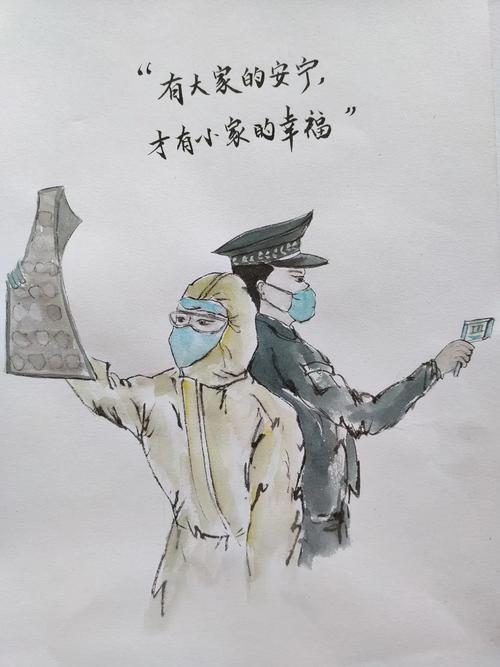 “有大家的安宁,
才有小家的幸福”